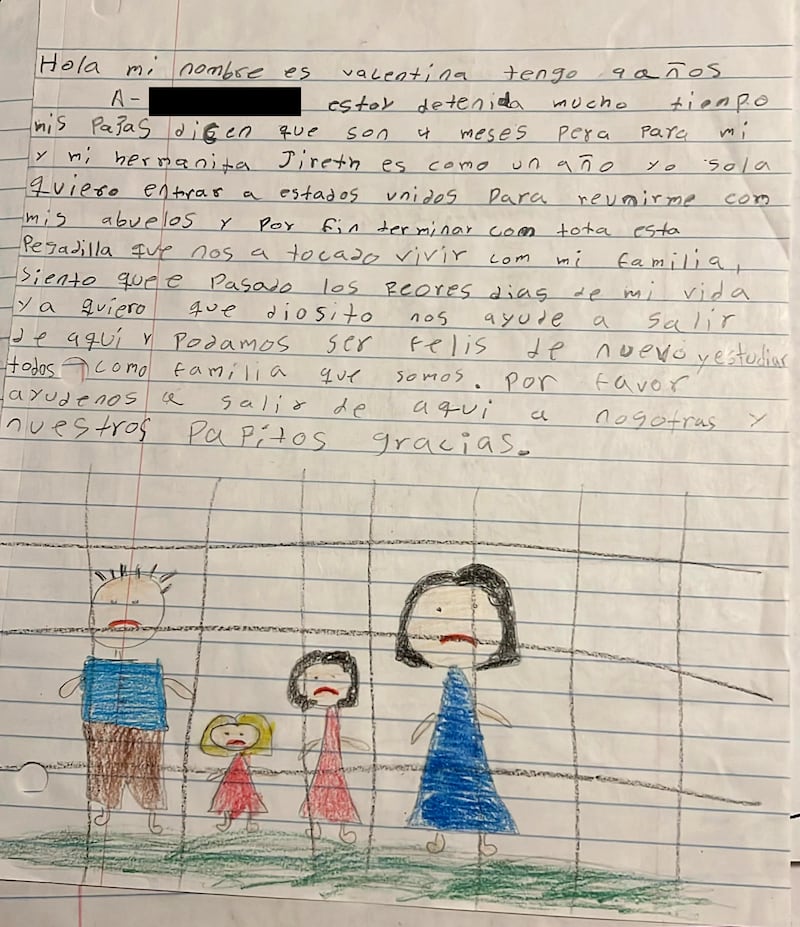 Hola mi nombre es valentina tengo 9 años
A- estoy detenida mucho tienpo
mis papas dicen que son 4 meses pera para mi
y mi hermanita Jireth es como un año yo sola
quiero entrar a estados unidos para reunirme com
mis abuelos y por fin terminar com tota esta
Pesadilla que nos a tocado vivir com mi familia,
siento que e pasado los peores dias de mi vida
ya quiero que diosito nos ayude a salir
de aquí y podamos ser felis de nuevo y estudiar
todos como familia que somos. por favor
ayudenos a salir de aqui a nosotras y
nuestros papitos gracias.